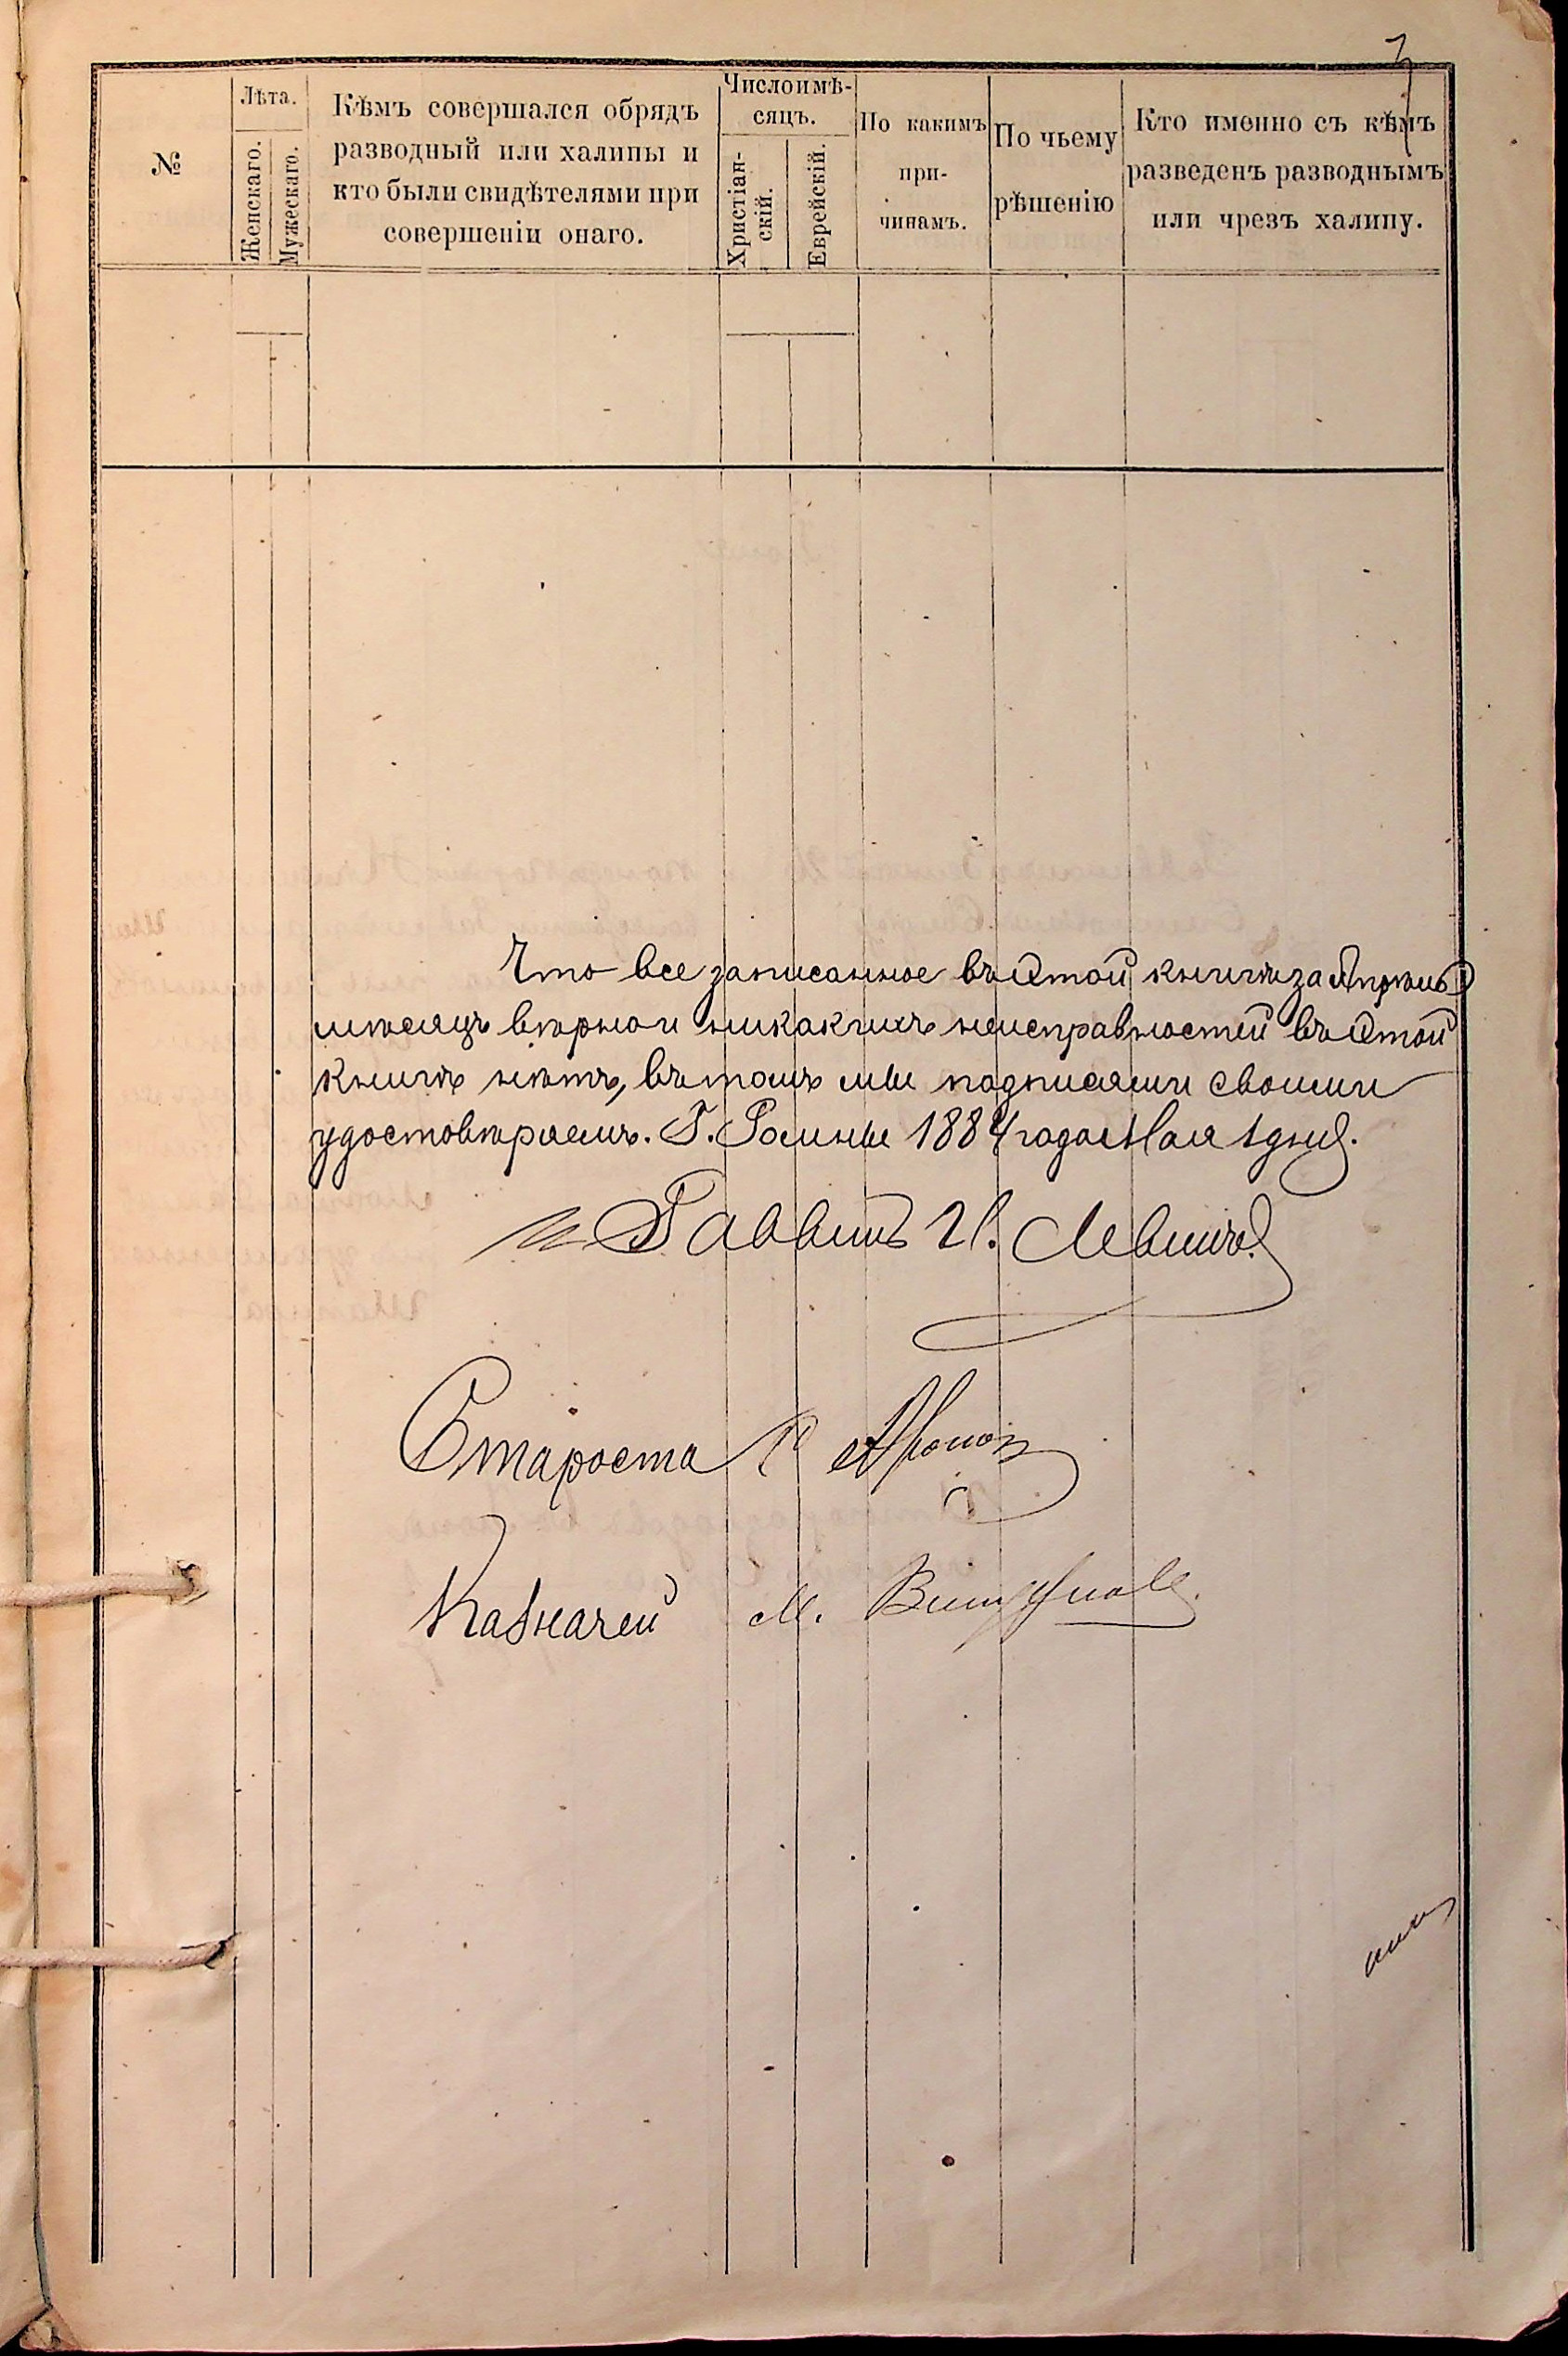 №
Лѣта.
Женскаго.
Мужескаго.
Кѣмъ совершался обрядъ
разводный или халицы и
кто были свидѣтелями при
совершеніи онаго.
Число и мѣ-
сяцъ.
Христіан-
скій.
Еврейскій.
По какимъ
при-
чинамъ.
По чьему
рѣшенію
Кто именно съ кѣмъ
разведенъ разводнымъ
или чрезъ халицу.
Что все записанное въ этой книгѣ за Апрѣль
мѣсяцъ вѣрно и никакихъ неисправностей въ этой
книгѣ нѣтъ, въ томъ мы подписями своими
удостовѣряемъ. Г. Ромны 1884 года Мая 1 дня.
Раввинъ И. Левинъ
Староста
Казначей М.